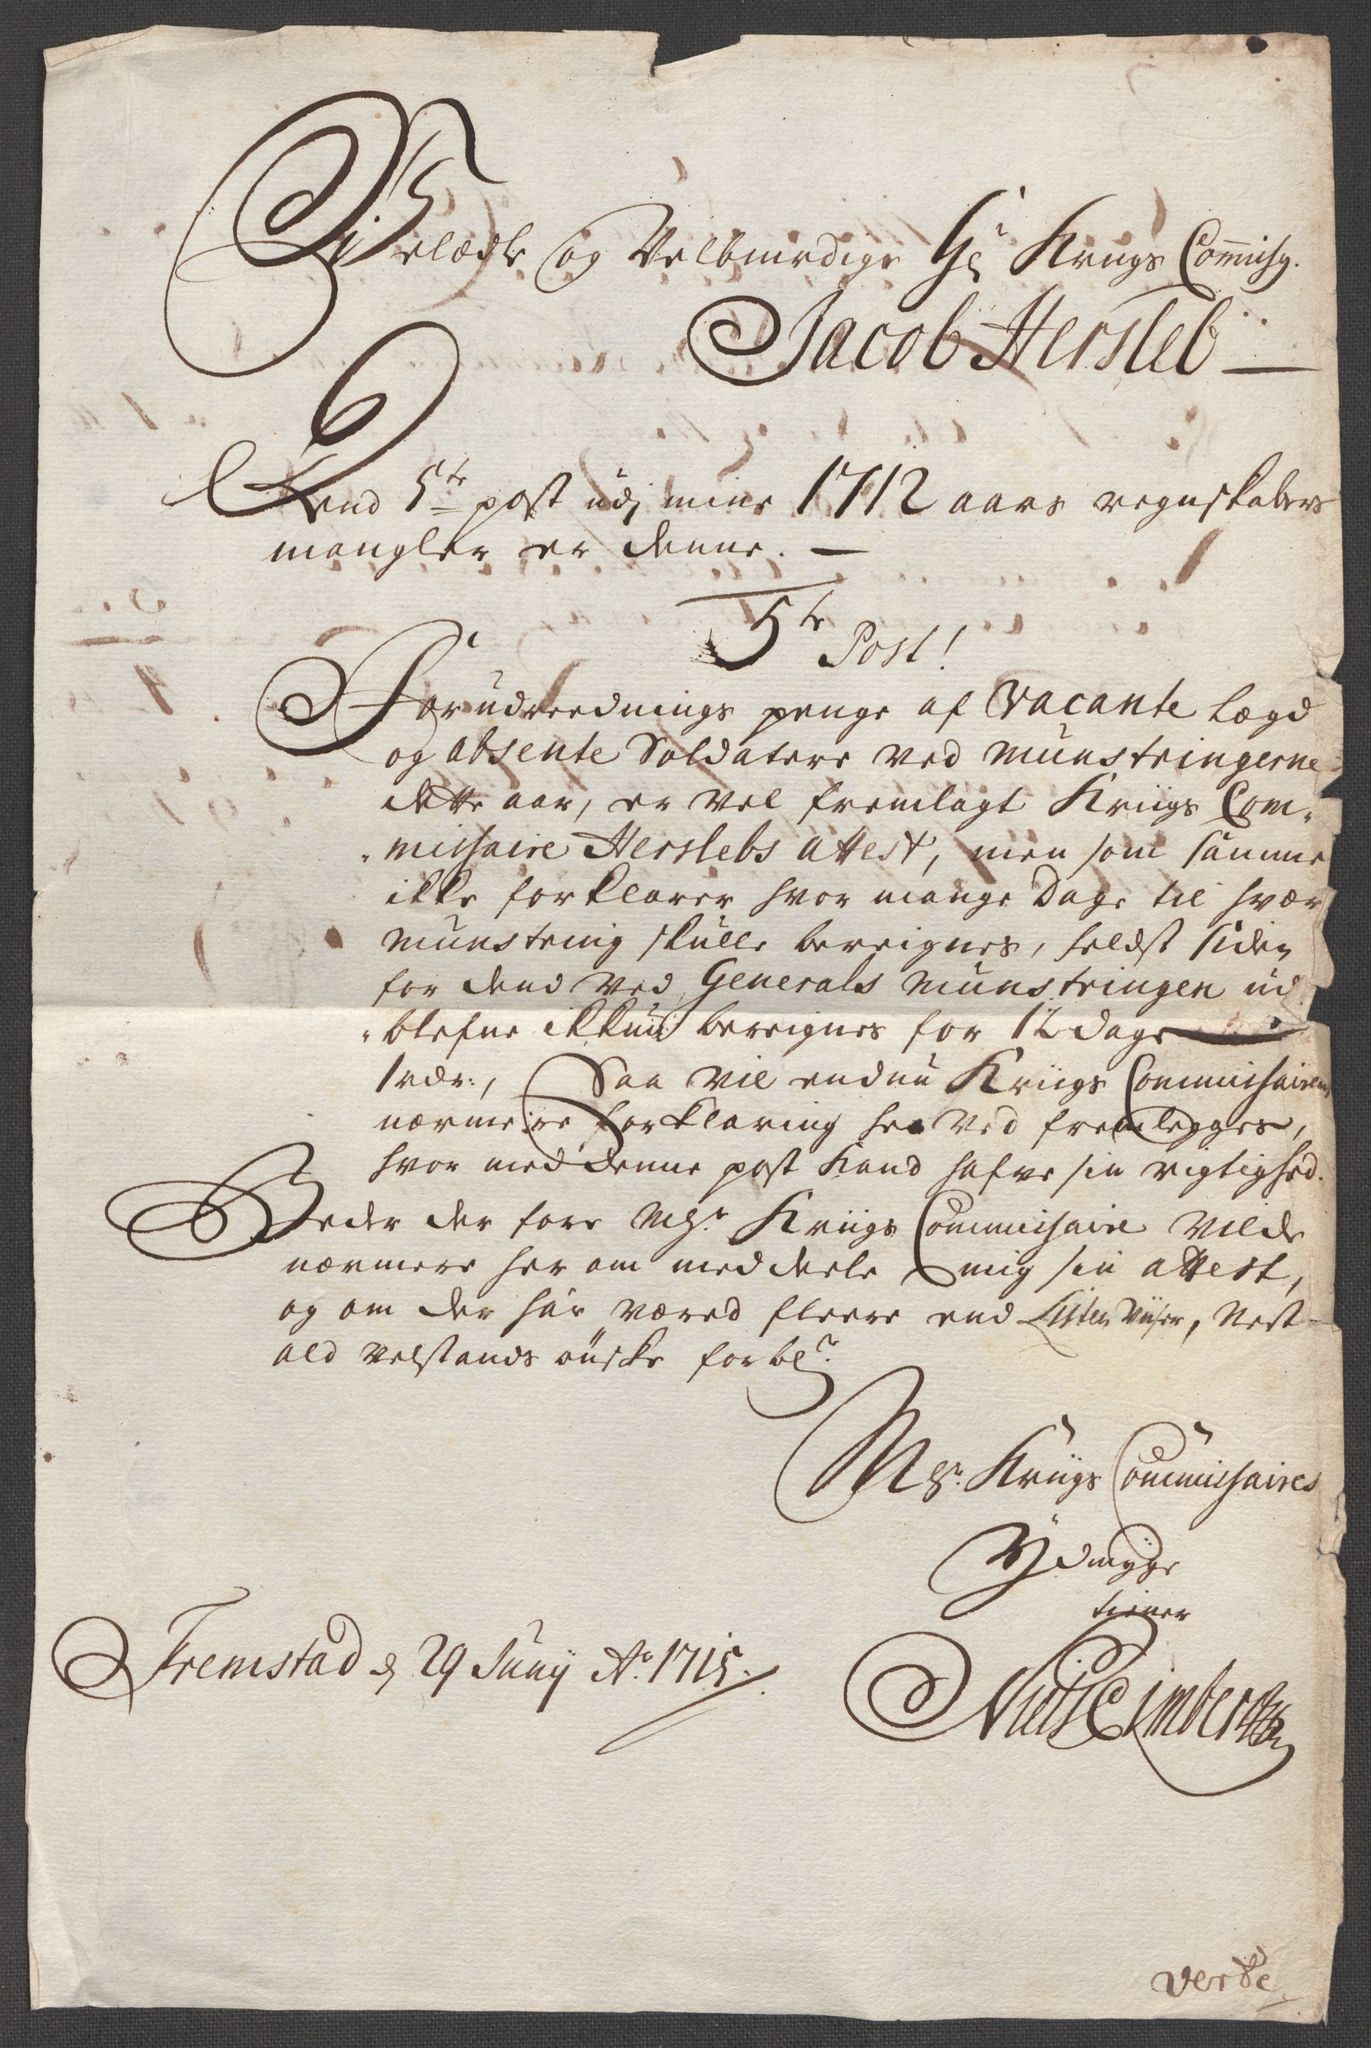 Velædle og Velbiurdige Hr Krigs Commiss.
Jacob Hersleb
Dend 5te post udj mine 1712 aars regnskabers
mangler er denne.
5te Post!
Forudreednings penge af vacante Lægd
og absente Soldatere ved munstringerne
dette aar, er vel fremlagt Kriigs Com-
-missaire Herslebs attest, men som samme
ikke forklarer hvor mange Dage til hvær
munstring skulle bereignes, heldst siden
for dend ved Generals munstringen ud
-blefne ikkun bereignes for 12 dage
hvær, Saa vil endnu Kriigs Commissairens
nærmere forklaring her ved fremlegges,
hvor med denne post kand hafve sin rigtighed.
Beder der fore Mhr. Kriigs Commissaire vilde
nærmere her om meddeele mig sin attest,
og om der har væred fleere end Listen viiser, Nest
ald velstands önske forblr.
Mhr. Kriigs Commissaires
Ydmyge
tiener
Fremstad d 29 Junij Ao. 1715.
Niels Cimber
verte